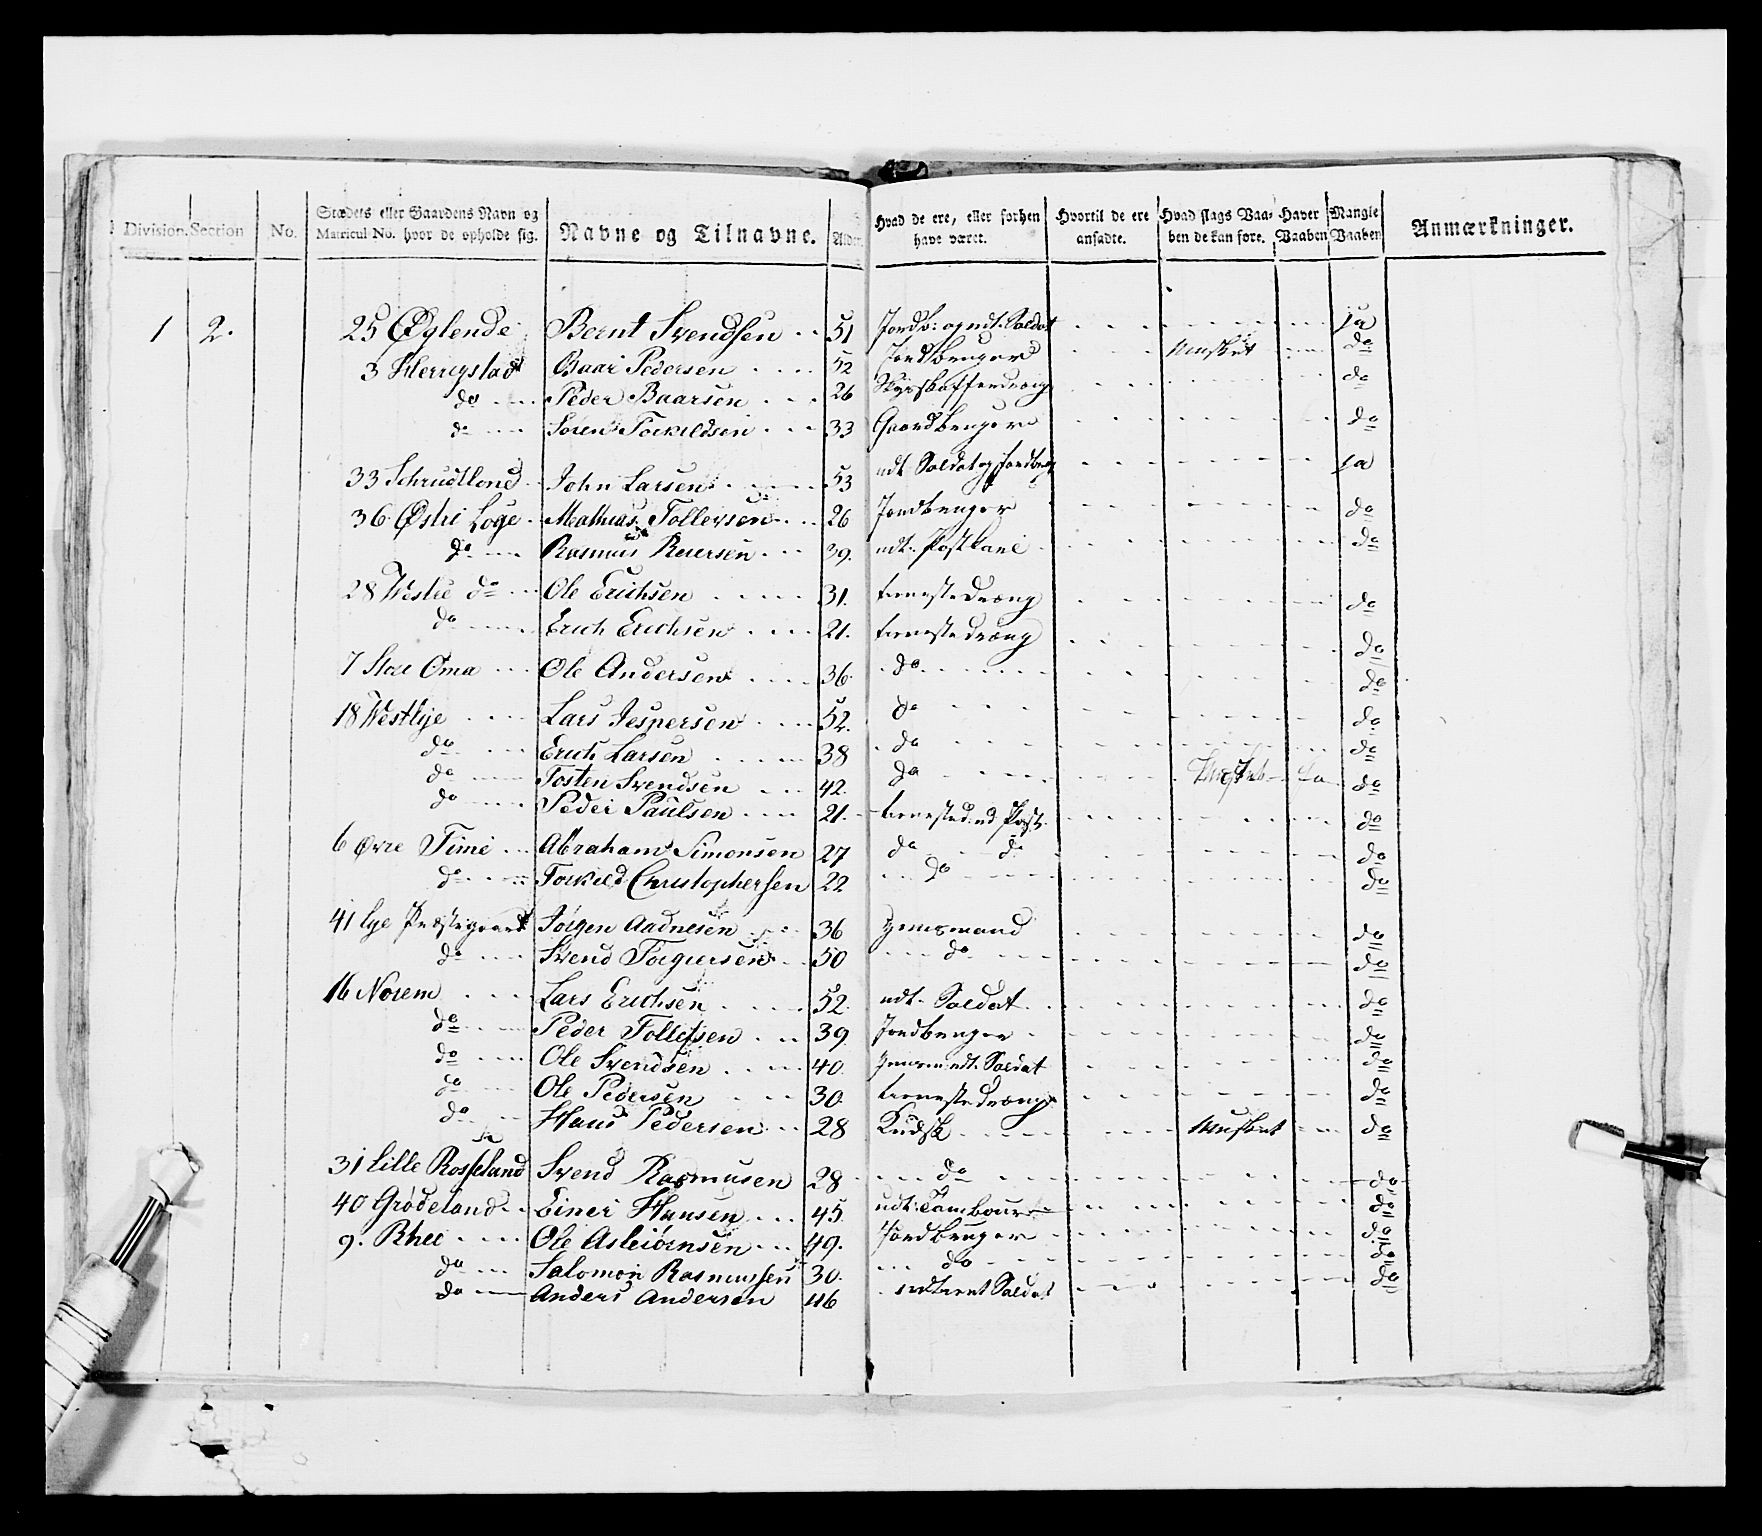 Division. Section No. Stædets eller Gaardens Navn og Matricul No. hvor de opholde sig. Navne og Tilnavne. Alder. Hvad de ere, eller forhen have været. Hvortil de ere ansadte. Hvad slags Vaaben de kan føre. Haver Vaaben Mangle Vaaben Anmærkninger.
1 2. 25 Øglende Bernt Svendsen 51 Jordb: og udt. Soldat ja
3 Herrigstad Baar Pedersen 52 Jordbruger Musket do
do Peder Baarsen 26 do
do Søren Torkildsen 33 Gaardbruger do
33 Schrudtland John Larsen 53 udt Soldat og Jordbrug ja
36 Østri Loge Mathias Tollevsen 26 Jordbruger do
do Rasmus Reiersen 39. udt. Postkarl do
28 Westre do Ole Erichsen 31. tienestedreng do
do Erich Erichsen 21. tienestedreng do
7 Store Oma Ole Andersen 36 do do
18 Westlye Lars Jespersen 52. do do
do Erich Larsen 38 do do
do Tosten Svendsen 42. do Musket do
do Peder Paulsen 21. do
6 Øvre Time Abraham Simonsen 27 do do do
do Torkild Christophersen 22 do do
41 Lye Præstegaard Jørgen Aadnesen 36 Huusmand do
do Svend Torgiersen 50 do do
16 Norem Lars Erichsen 52. udt. Soldat do
do Peder Tollefsen 39. Jordbruger do
do Ole Svendsen 40. Huusm udt. Soldat do
do Ole Pedersen 30. tienestedreng do
do Hans Pedersen 28 Kudsk Musket do
31 Lille Rosseland Svend Rasmusen 28 do do
40 Grødeland Einer Hansen 45. udt: Tambour do
9. Rhee Ole Asbiørnsen 49. Jordbruger do
do Salomon Rasmussen 30. do do
do Anders Andersen 46 udtient Soldat do